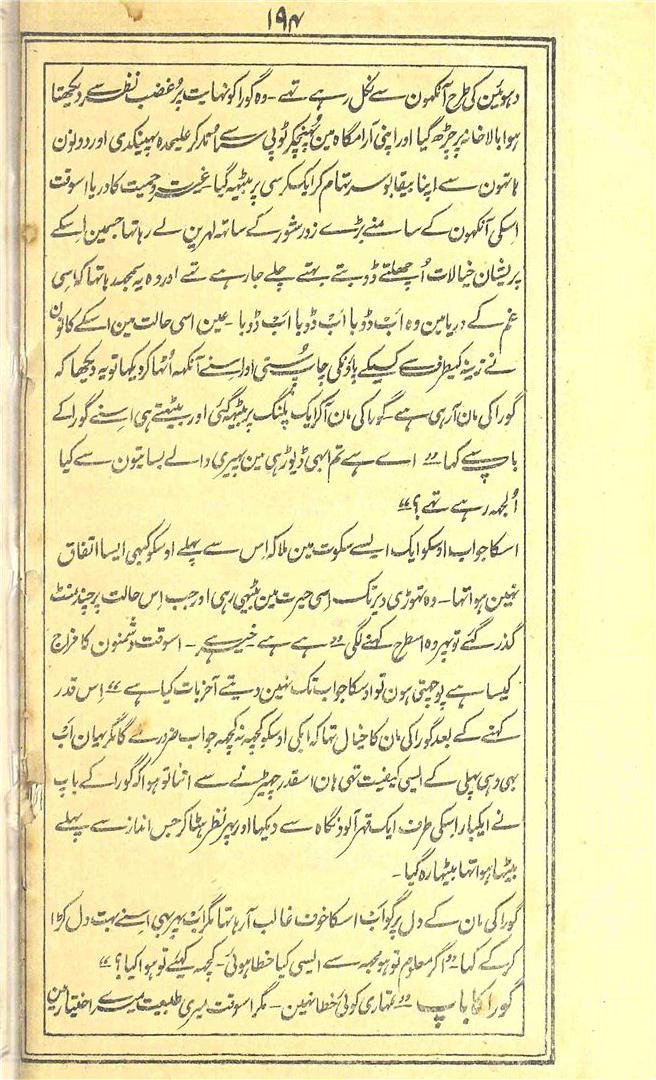 ۱۹۴
دہوئین کی طرح آنکھون سے نکل رہے تھے ۔ وہ گورا کو نہایت پُرغضب نظر سے دیکھتا
ہوا بالاخانہ پر چڑھ گیا اور اپنی آرامگاہ مین پُہنچکر ٹوپی سر سے اُتار کر علیحدہ پھینکدی اور دونون
ہاتھون سے اپنا بیقابو سر تھام کر ایک کرسی پر بیٹھہ گیا ۔ غیرت و حمیت کا دریا اسوقت
اسکی آنکھون کے سامنے بڑے زور شور کے ساتھ لہرین لے رہا تھا جسمین اسکے
پریشان خیالات اُچھلتے ڈوبتے بہتے چلے جا رہے تھے اور وہ یہ سمجھہ رہا تھا کہ اسی
غم کے دریا مین وہ اَبْ ڈوبا اَبْ ڈوبا اَبْ ڈوبا ۔ عین اسی حالت مین اسکے کانون
نے زینہ کیطرف سے کسیکے پاؤنکی چاپ سُنی اور اسنے آنکھہ اُٹھا کر دیکھا تو یہ دیکھا کہ
گورا کی مان آ رہی ہے ۔ گورا کی مان آکر ایک پلنگ پر بیٹھہ گئی اور بیٹھتے ہی اسنے گورا کے
باپ سے کہا ’’ اے ہے تم ابھی ڈیوڑھی مین پھیری والے بساتیون سے کیا
اُلجھہ رہے تھے ؟ ‘‘
اسکا جواب اوسکو ایک ایسے سکوت مین ملا کہ اِس سے پہلے اوسکو کبھی ایسا اتفاق
نہین ہوا تھا ۔ وہ تھوڑی دیر تک اسی حیرت مین بیٹھی رہی اور جب اِس حالت پر چند منٹ
گذر گئے تو پھر وہ اسطرح کہنے لگی ’’ ہے ہے ۔ خیر ہے ۔ اسوقت دشمنون کا مزاج
کیسا ہے پوچھتی ہون تو اوسکا جواب تک نہین دیتے آخر بات کیا ہے ‘‘ اِس قدر
کہنے کے بعد گورا کی مان کا خیال تھا کہ ابکی اوسکو کچھہ نہ کچھہ جواب ضرور ملے گا مگر یہان اَبْ
بھی وہی پہلی کے ایسی کیفیت تھی ہان اسقدر چھیڑنے سے اتنا تو ہوا کہ گورا کے باپ
نے ایکبار اِسکی طرف ایک قہر آلود نگاہ سے دیکھا اور پھر نظر ہٹا کر جس انداز سے پہلے
بیٹھا ہوا تھا بیٹھا رہ گیا ۔
گورا کی مان کے دل پر گو اَبْ اسکا خوف غالب آ رہا تھا مگر اَبْ پھر بھی اسنے بہت دل کڑا
کر کے کہا ۔ ’’ اگر معلوم تو ہو مجھہ سے ایسی کیا خطا ہوئی ۔ کچھہ کہیئے تو ہوا کیا ؟ ‘‘
گورا کا باپ ’’ تمہاری کوئی خطا نہین ۔ مگر اسوقت میری طبیعت میرے اختیار مین